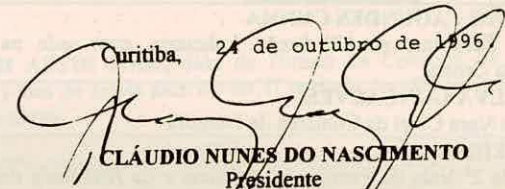 Curitiba, 24 de outubro de 1996.
CLÁUDIO NUNES DO NASCIMENTO
Presidente